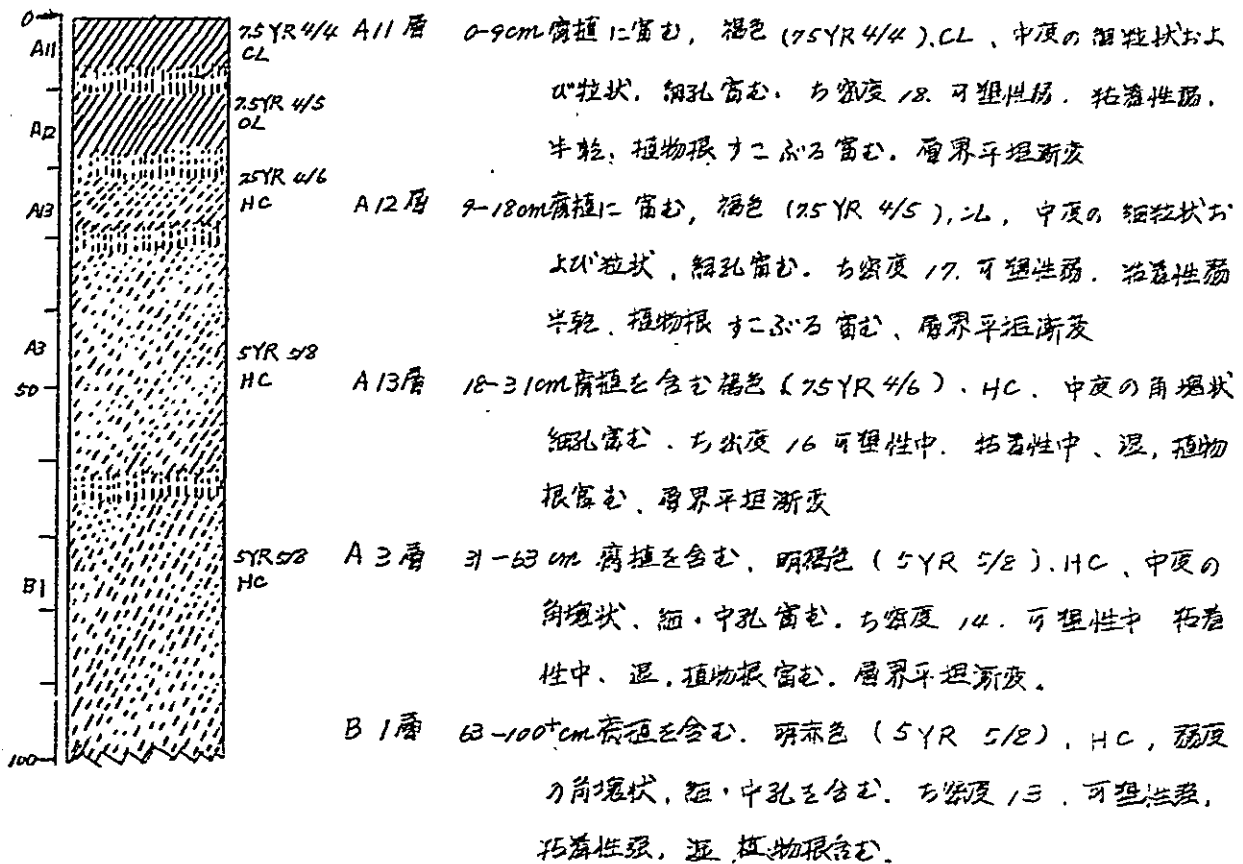 0
A11
A12
A13
A3
50
B1
100
7.5YR 4/4
CL
7.5YR 4/5
CL
7.5YR 4/6
HC
5YR 5/8
HC
5YR 5/8
HC
A11層 0-9cm腐植に富む, 褐色 (7.5YR 4/4), CL, 中度の細粒状およ
び粒状, 細孔富む. ち密度 18. 可塑性弱. 粘着性弱.
半乾, 植物根すこぶる富む. 層界平坦漸変
A12層 9-18cm腐植に富む, 褐色 (7.5YR 4/5), CL, 中度の細粒状お
よび粒状, 細孔富む. ち密度 17. 可塑性弱. 粘着性弱
半乾, 植物根すこぶる富む, 層界平坦漸変
A13層 18-31cm腐植を含む褐色 (7.5YR 4/6). HC. 中度の角塊状
細孔富む. ち密度 16 可塑性中. 粘着性中, 湿, 植物
根富む, 層界平坦漸変
A3層 31-63cm 腐植を含む, 明褐色 (5YR 5/8). HC, 中度の
角塊状, 細・中孔富む. ち密度 14. 可塑性中 粘着
性中, 湿, 植物根富む. 層界平坦漸変.
B1層 63-100⁺cm腐植を含む. 明赤色 (5YR 5/8), HC, 弱度
の角塊状, 細・中孔を含む. ち密度 13. 可塑性強,
粘着性強, 湿, 植物根含む.